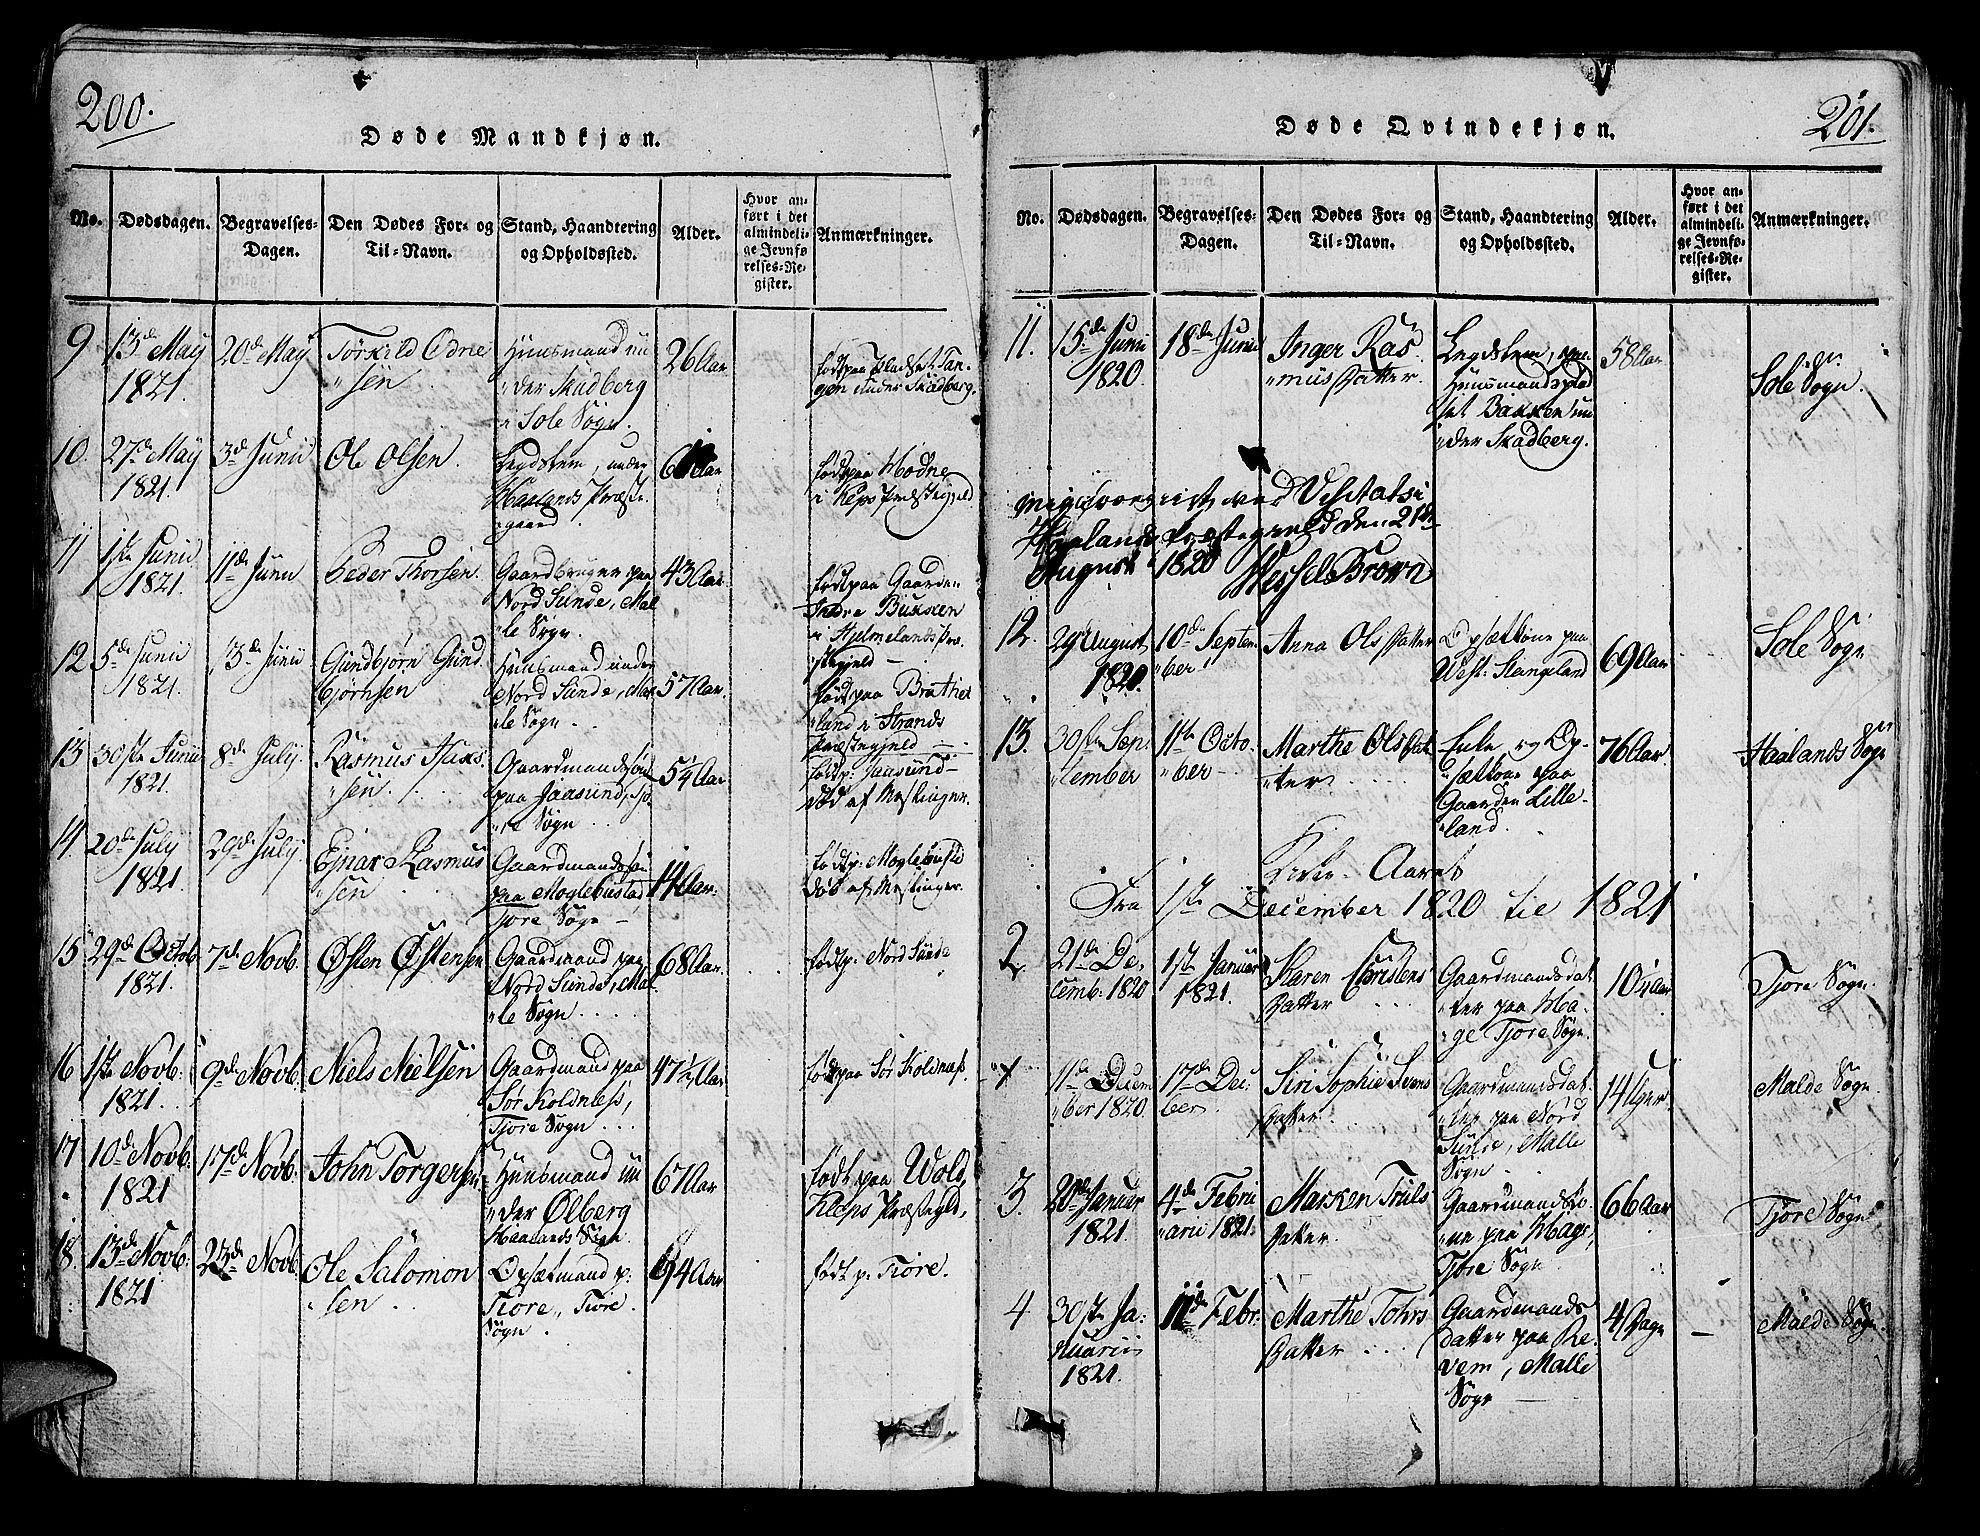 200.
Døde Mandkjøn.
No. Dødsdagen. Begravelses-Dagen. Den Dødes For- og Til-Navn. Stand, Haandtering og Opholdssted. Alder. Hvor anført i det almindelige Jevnførelses-Register. Anmærkninger.
9 13de May 1821 20de May Törkild Odne
"sen Huusmand un
"der Skadberg
i Sole Sogn. 26 Aar födt paa Pladset Tan-
gen under Skadberg.
10. 27de May 1821. 3de Junii Ole Olsen. Legdslem, under
Haalands Præste
"gaard 6 Aar födt paa Hodne
i Kleps Præstegjeld
11 1ste Junii 1821. 11de Junii Peder Thorsen. Gaardbruger paa
Nord Sunde, Mal
"le Sogn. 43 Aar. födt paa Gaarden
Indre Bukken
i Hjelmelands Præ.
"stegjeld —
12 5de Junii 1821. 13de Junii Gundbjörn Gund
björnsen Huusmand under
Nord Sunde, Mal
"le Sogn 57 Aar. födt paa Bratte
land i Strands
Præstegjeld —
13 30ste Junii 1821. 8de July. Rasmus Isaks
"sen. Gaardmandssön
paa Jaasund, Tjo
"re Sogn 5¼ Aar födt p: Jaasund—
död af Meslinger.
14. 20de July 1821. 29de July. Ejnar Rasmus
"sen Gaardmandssön
paa Moglebustad
Tjore Sogn — 14 Aar. födt p: Moglebustad
död af Meslinger.
15 29de Octob. 1821. 7de Novb. Østen Østensen Gaardmand paa
Nord Sunde, Mal
"le Sogn. . . . 68 Aar. födt p: Nord Sunde
16 1ste Novb: 1821. 9de Novb. Niels Nielsen Gaardmand paa
Sör Koldness,
Tjore Sogn . . . 47½ Aar födt paa Sör Koldness.
17 10de Novb: 1821 17de Novb. John Torgersen Huusmand un
"der Ølberg
Haalands Sogn 67 Aar födt paa Wold,
Kleps Præstegjld,
18. 13de Novb: 1821 23de Novb. Ole Salomon
"sen Opsætmand p:
Tiore, Tiore
Sogn. 4 Aar födt p: Tiore.
201.
Døde Qvindekjøn.
No. Dødsdagen. Begravelses-Dagen. Den Dødes For- og Til-Navn. Stand, Haandtering og Opholdssted. Alder. Hvor anført i det almindelige Jevnførelses-Register. Anmærkninger.
11. 15de Junii 1820. 18de Junii Inger Ras
"mus Datter. Legdslem,
Huusmandsplad
set Bakken un
"der Skadberg. 58 Aar Sole Sogn.
ved Visitatsi
Haalands Præstegjeld den 21de
August 1820 Wessel Brown
12. 29 August 1820. 10de Septem
"ber Anna Ols Datter Opsætkone paa
West: Stangeland 69 Aar Sole Sogn
13. 30ste Sep:
"tember 11te Octo-
"ber — Marthe Ols Dat
"ter Enke og Op-
"sætkone paa
Gaarden Lille-
"land. 76 Aar. Haalands Sogn
Kirke-Aaret
Fra 1ste December 1820 til 1821
2. 21de De-
cemb: 1820 1ste Januar
1821. Karen Christens
Datter . . . Gaardmandsdat
"ter paa Ha-
"ge Tjore Sogn. 10¼ Aar Tjore Sogn.
11de Decem
"ber 1820. 17de De:
ber. Siri Sophie Svens
Datter . . . Gaardmandsdat
"ter paa Nord
Sunde, Malle
Sogn 14 Uger. Malde Sogn
3. 20de Januar
1821. 4de Febru
"arii 1821. Marken Truls
Datter. Gaardmandsko
"ne paa Hage,
Tjore Sogn 66 Aar Tjore Sogn
4 30ste Ja:
nuarii
1821. 11de Febr: Marthe Tohrs
Datter . . . Gaardmands
datter paa Re-
vem, Malle
Sogn — 4 Dage — Malde Sogn.